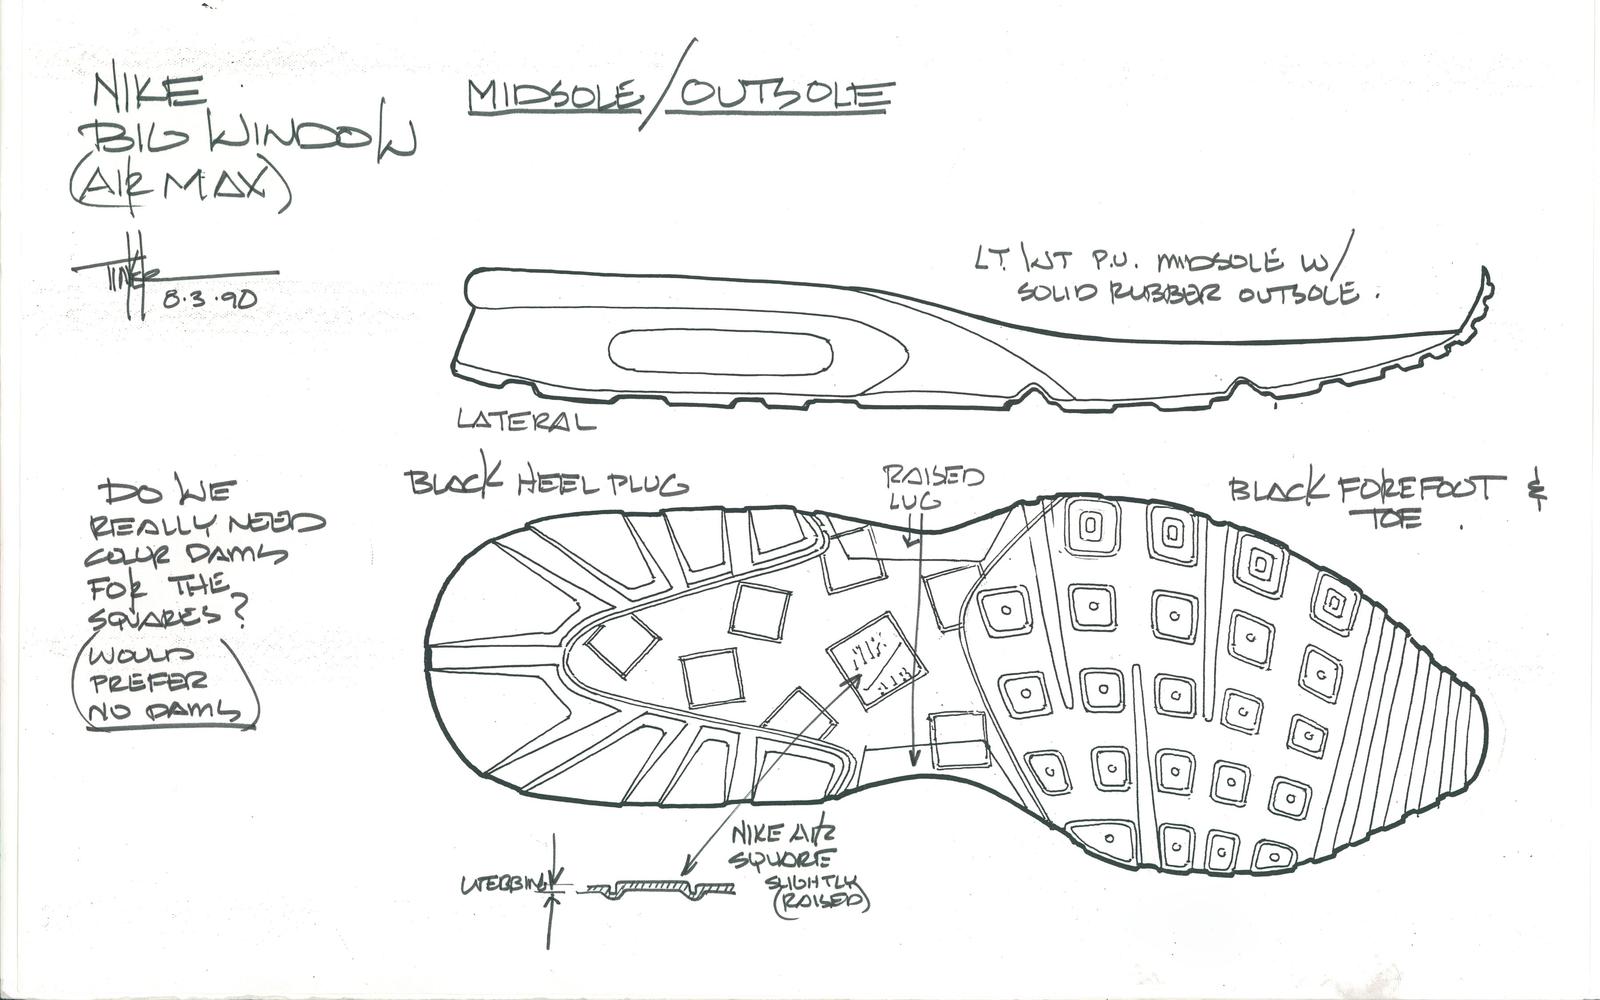 NIKE
BIG WINDOW
(AIR MAX)
TINKER
8.3.90
MIDSOLE/OUTSOLE
LT. WT P.U. MIDSOLE W/
SOLID RUBBER OUTSOLE.
LATERAL
BLACK HEEL PLUG
RAISED
LUG
BLACK FOREFOOT &
TOE.
DO WE
REALLY NEED
COLOR DAMS
FOR THE
SQUARES?
(WOULD
PREFER
NO DAMS)
NIKE
AIR
NIKE AIR
SQUARE
SLIGHTLY
(RAISED)
WEBBING